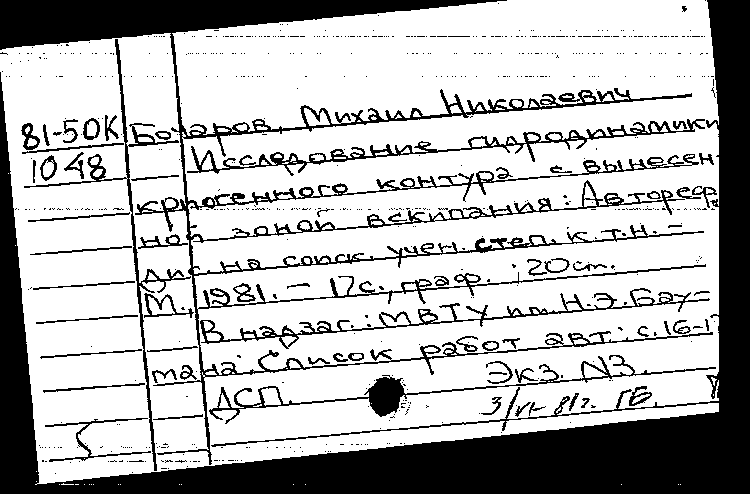 81-50К Бочаров, Михаил Николаевич
1048 Исследование гидродинамики
криогенного контура с вынесен-
ной зоной вскипания: Автореф.
дис. на соиск. учен. степ. к.т.н. -
М., 1981. - 17с., граф. ; 20см.
В надзаг.: МВТУ им. Н.Э.Бау-
мана. Список работ авт.: с.16-17
Экз. №3.
ДСП.
3/VI-81г. ГБ.